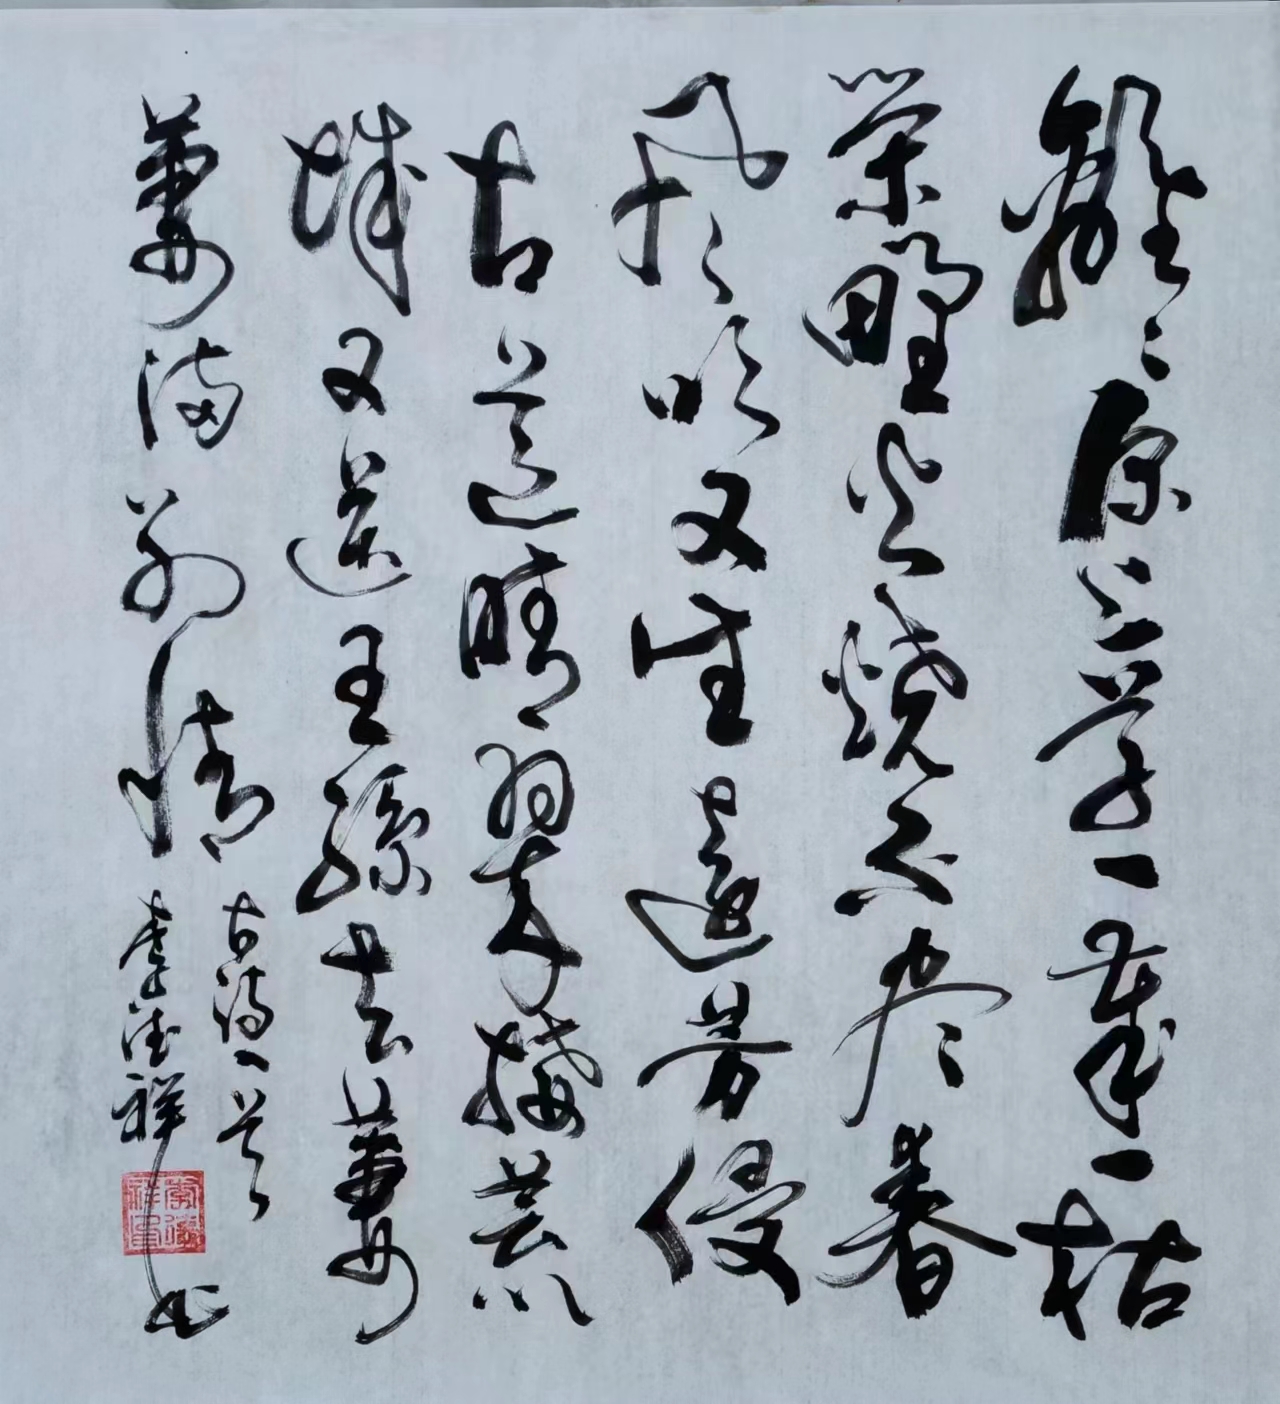 離〻原上草一歲一枯
榮野火燒不尽春
風吹又生遠芳侵
古道晴翠接荒
城又送王孫去萋
萋滿別情
古詩一首
李德祥书